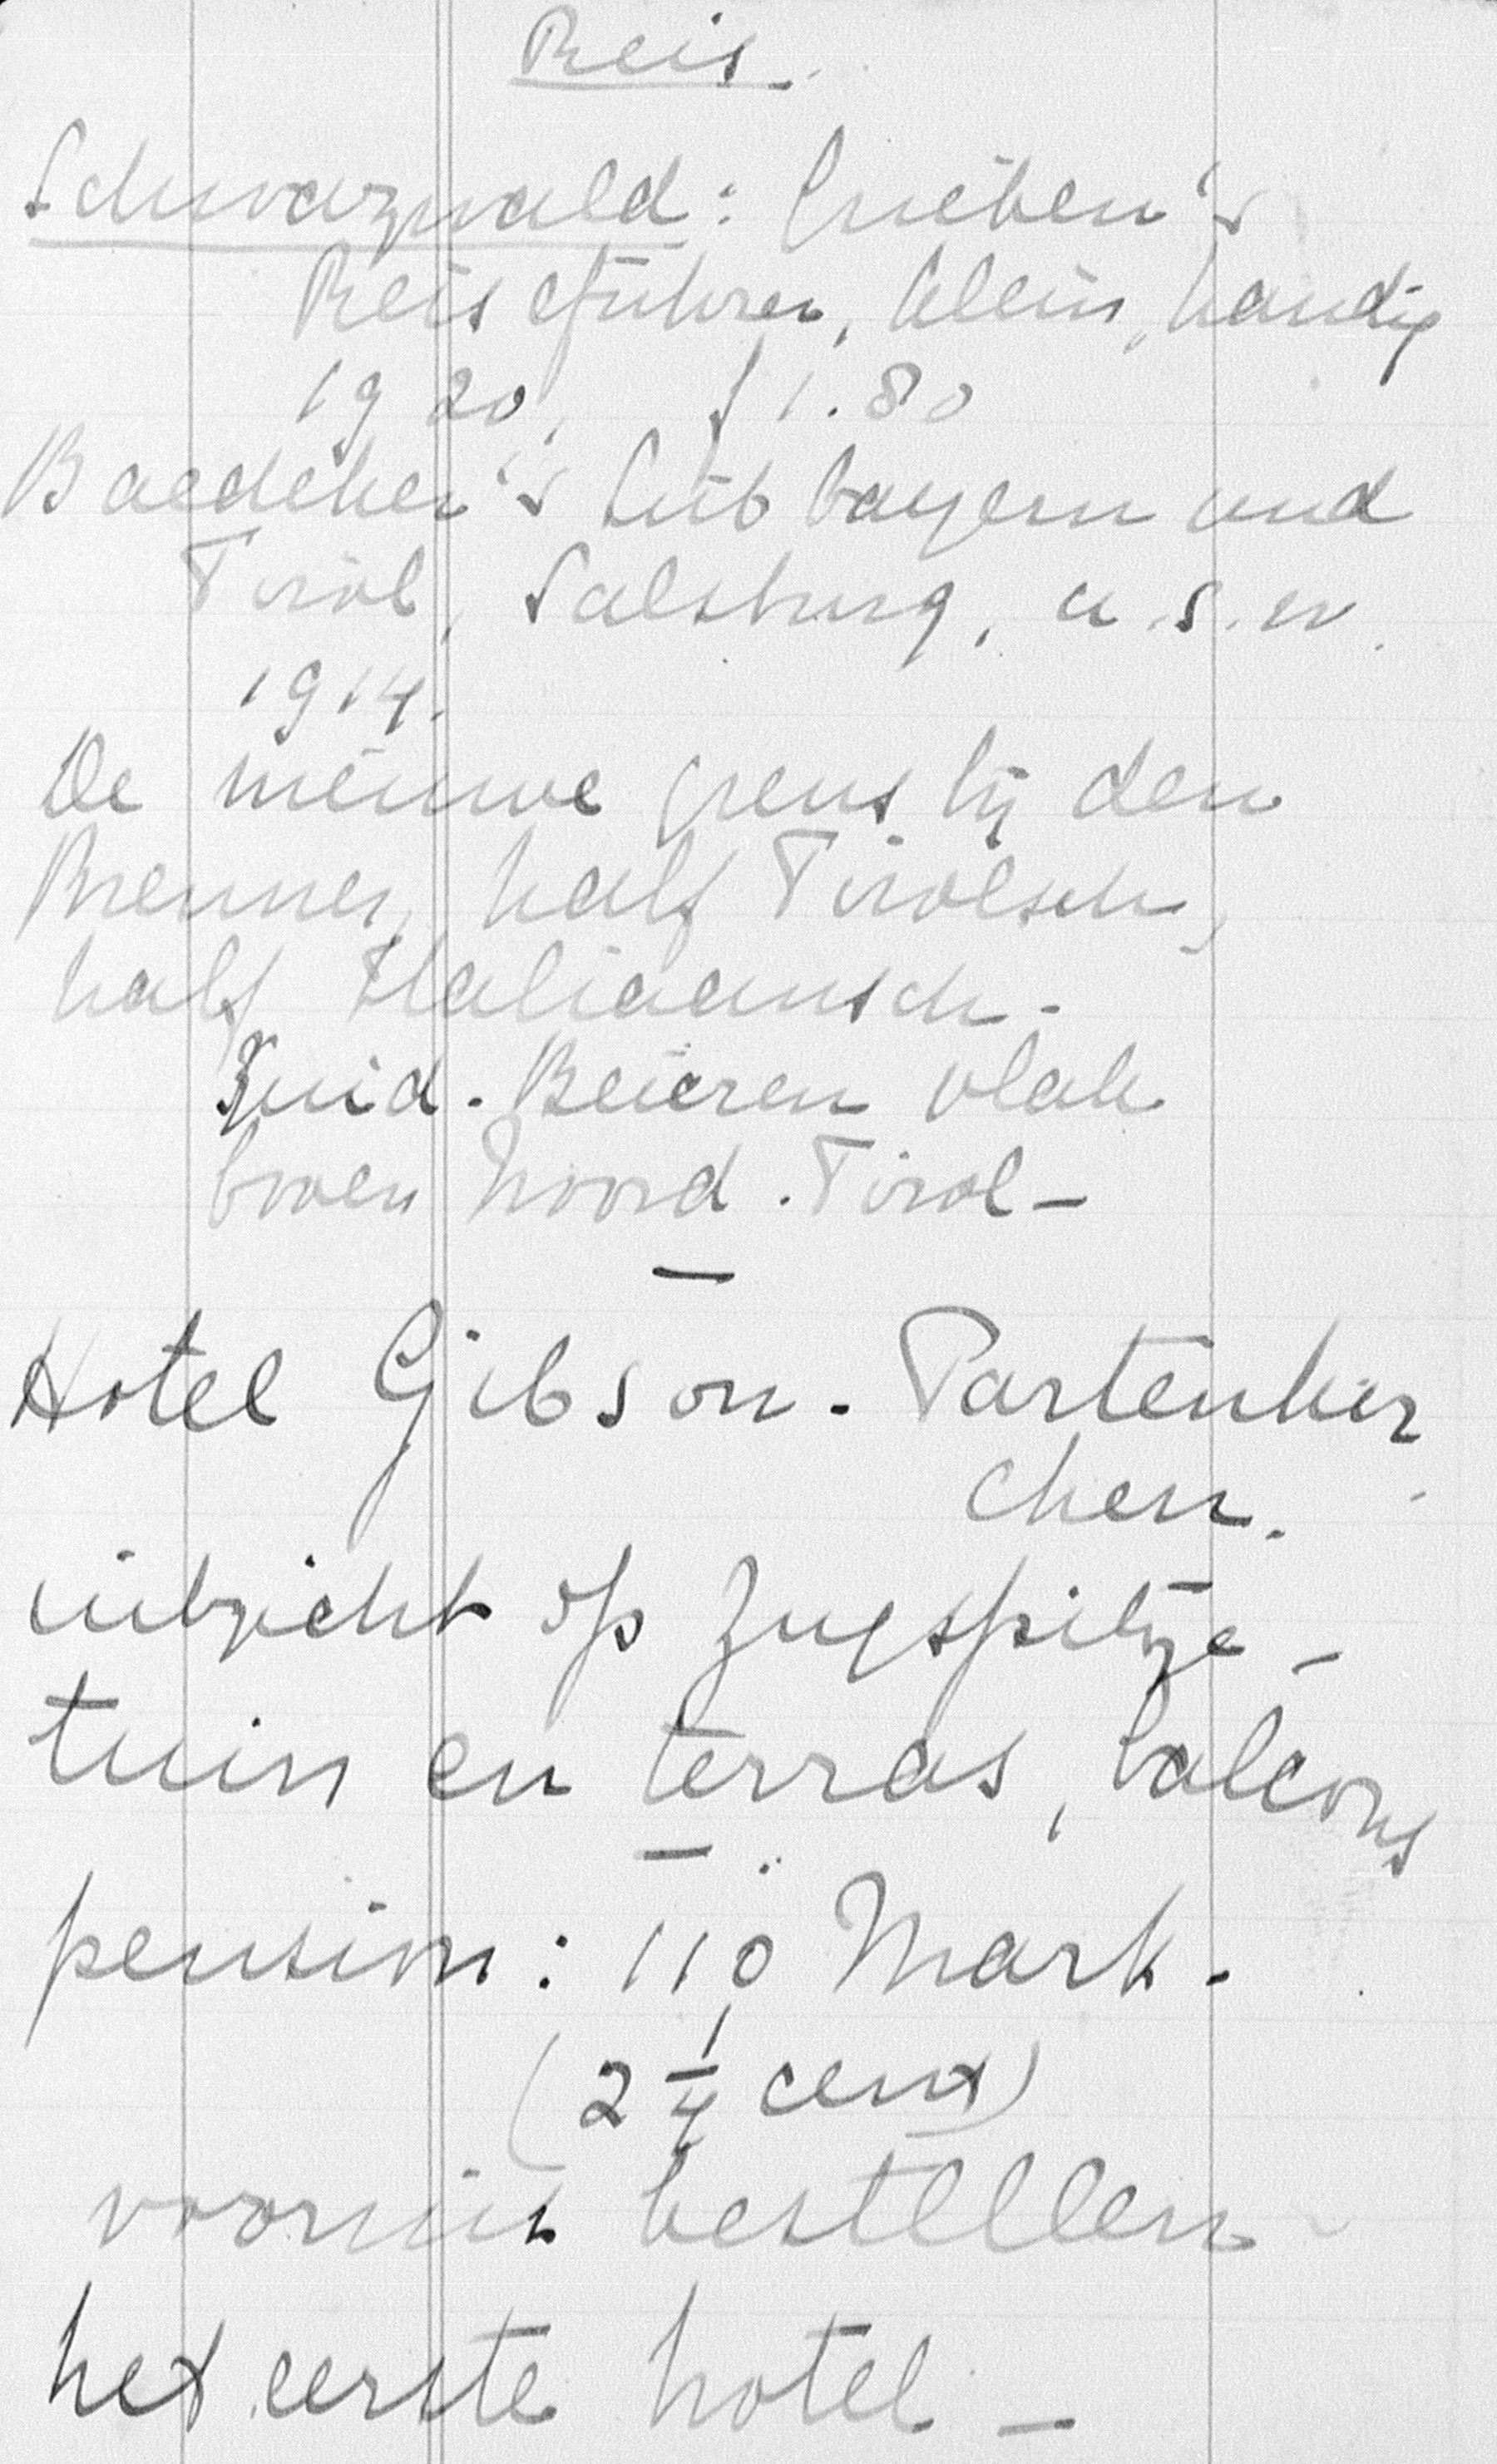 Reis.
Schwarzwald: Grieben's
Reiseführer, klein, handig
1920, f 1.80
Baedeker's Südbayern und
Tirol, Salzburg, u.s.w.
1914.
De nieuwe grens bij den
Brenner, half Tiroolsch,
half Italiaansch.
Zuid-Beieren vlak
boven Noord-Tirol –
—
Hotel Gibson. Partenkir
chen.
uitzicht op Zugspitze –
tuin en terras, balcons
—
pension: 110 Mark.
(2 1/4 cent)
vooruit bestellen
het eerste hotel –